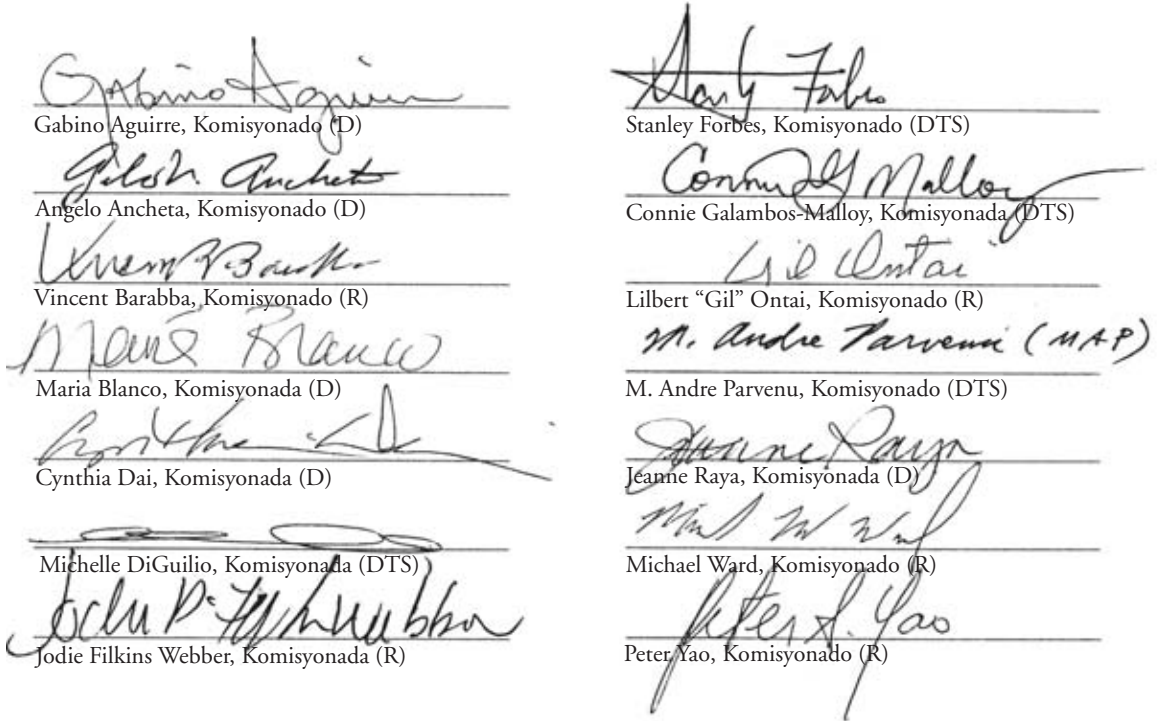 Gabino Aguirre
Gabino Aguirre, Komisyonado (D)
Angelo Ancheta, Komisyonado (D)
Vincent Barabba, Komisyonado (R)
Blanco
Maria Blanco, Komisyonada (D)
Cynthia Dai, Komisyonada (D)
Michelle DiGuilio, Komisyonada (DTS)
Jodie Filkins Webber, Komisyonada (R)
Forbes
Stanley Forbes, Komisyonado (DTS)
Connie G Malloy
Connie Galambos-Malloy, Komisyonada (DTS)
Gil Ontai
Lilbert “Gil” Ontai, Komisyonado (R)
M. Andre Parvenu (MAP)
M. Andre Parvenu, Komisyonado (DTS)
Jeanne Raya
Jeanne Raya, Komisyonada (D)
Michael Ward, Komisyonado (R)
Peter S. Yao
Peter Yao, Komisyonado (R)